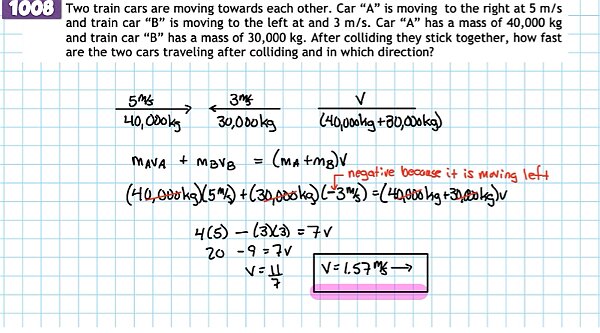 1008 Two train cars are moving towards each other. Car “A” is moving to the right at 5 m/s
and train car “B” is moving to the left at and 3 m/s. Car “A” has a mass of 40,000 kg
and train car “B” has a mass of 30,000 kg. After colliding they stick together, how fast
are the two cars traveling after colliding and in which direction?
5m/s 3m/s V
40,000kg 30,000kg (40,000kg+30,000kg)
mAVA + mBVB = (mA+mB)V
negative because it is moving left
(40,000kg)(5m/s)+(30,000kg)(-3m/s)=(40,000kg+30,000kg)v
4(5) - (3)(3) = 7v
20 - 9 = 7v
V = 11/7 V = 1.57 m/s →